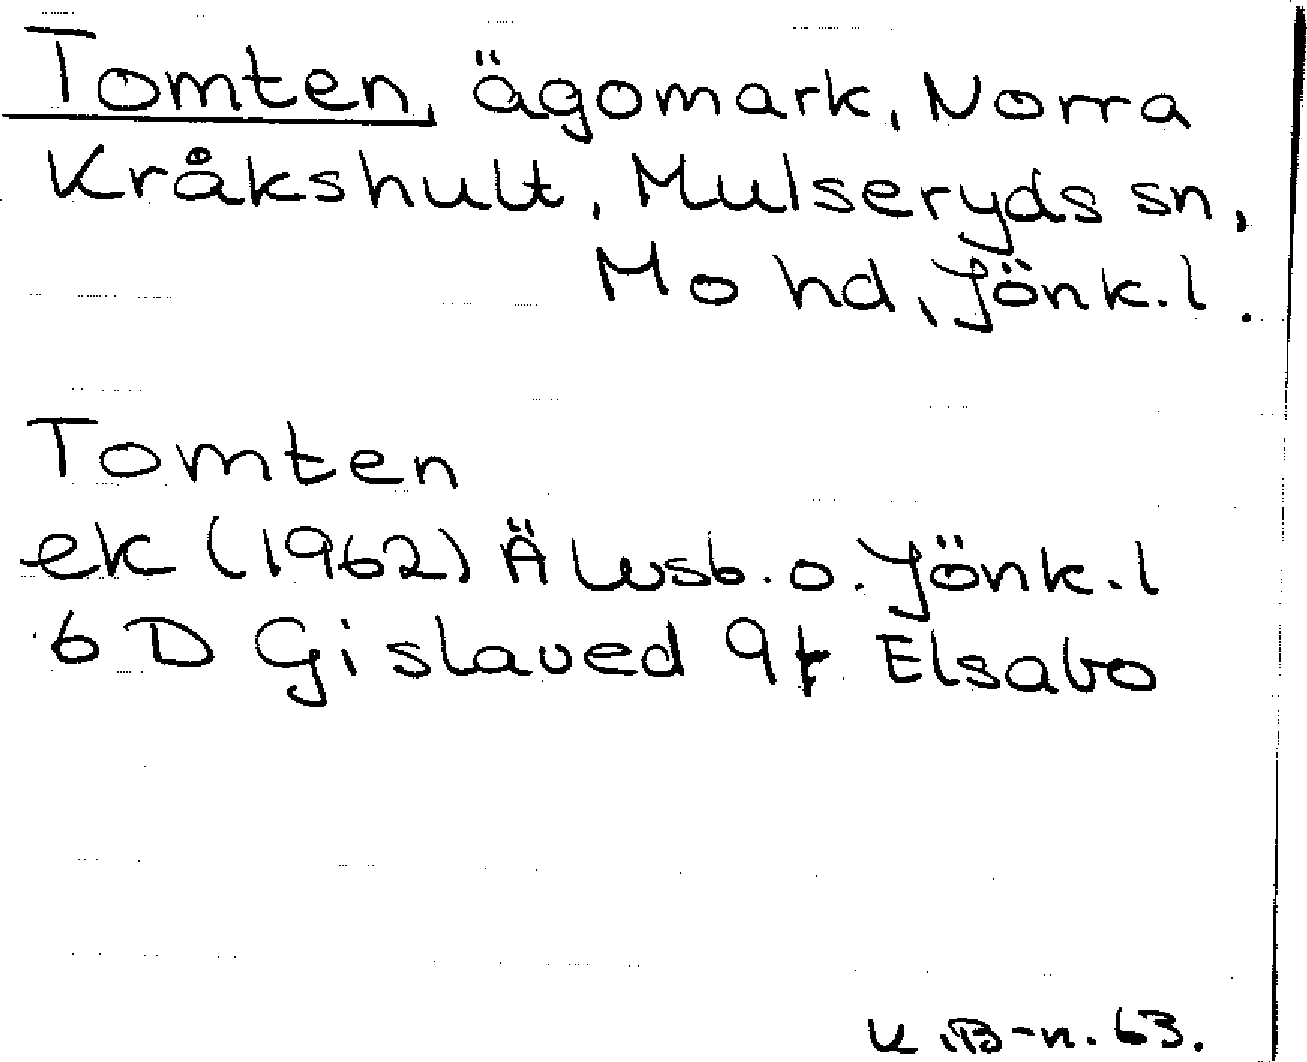 Tomten, ägomark, Norra
Kråkshult, Mulseryds sn,
Mo hd, Jönk.l.
Tomten
ek (1962) Älvsb. o. Jönk.l
6 D Gislaved 9f Elsabo
K.B-n. 63.